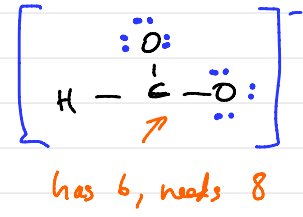 O
H — C — O
has 6, needs 8